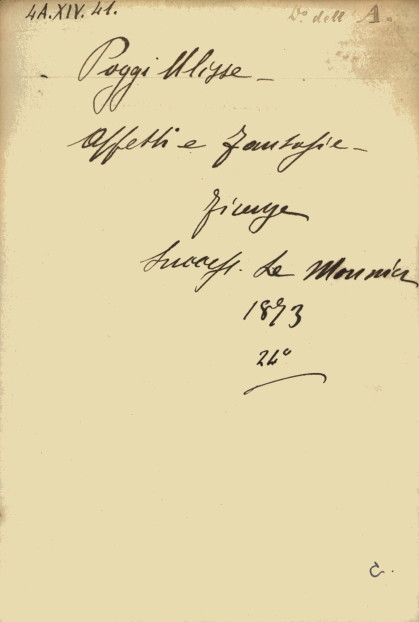 4A.XIV. 41.
D.º dell' A.
Poggi Ulisse -
Affetti e Fantasie -
Firenze
Success. Le Monnier
1873
24º
C.